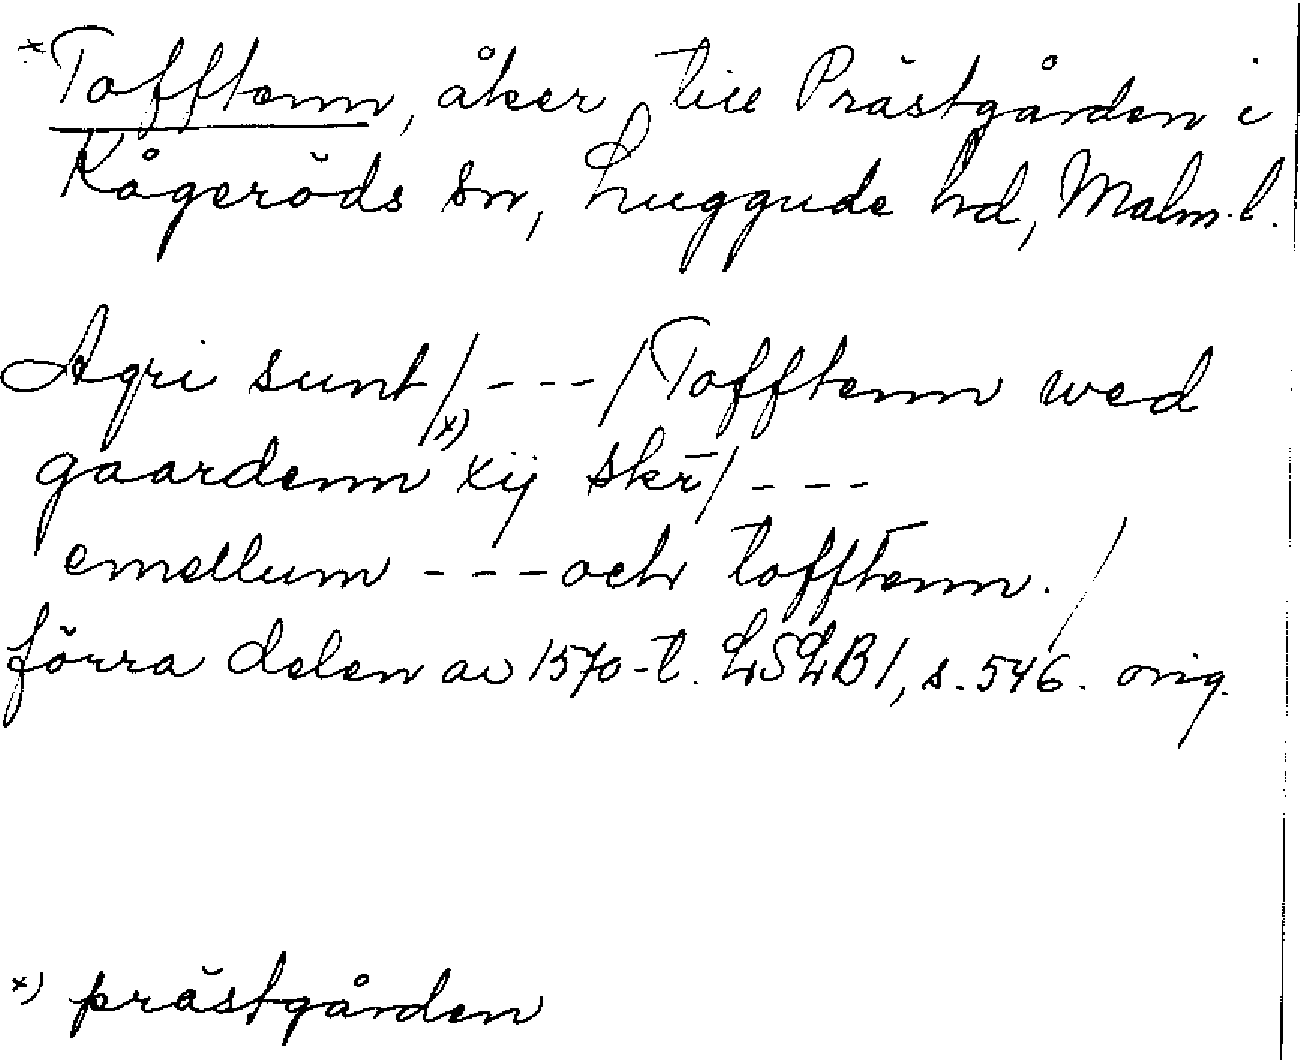 *Tofftenn, åker, till Prästgården i
Kågeröds sn, Luggude hd, Malm. l.
Agri sunt/ - - - / Tofftenn wed
gaardenn x) xij skr̄/ - - -
emellum - - - och tofftenn. /
förra delen av 1570-t. LSLB1, s. 546. orig.
x) prästgården